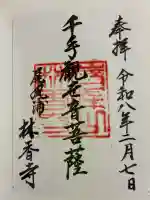 奉拝 令和八年二月七日
千手観世音菩薩
林香寺